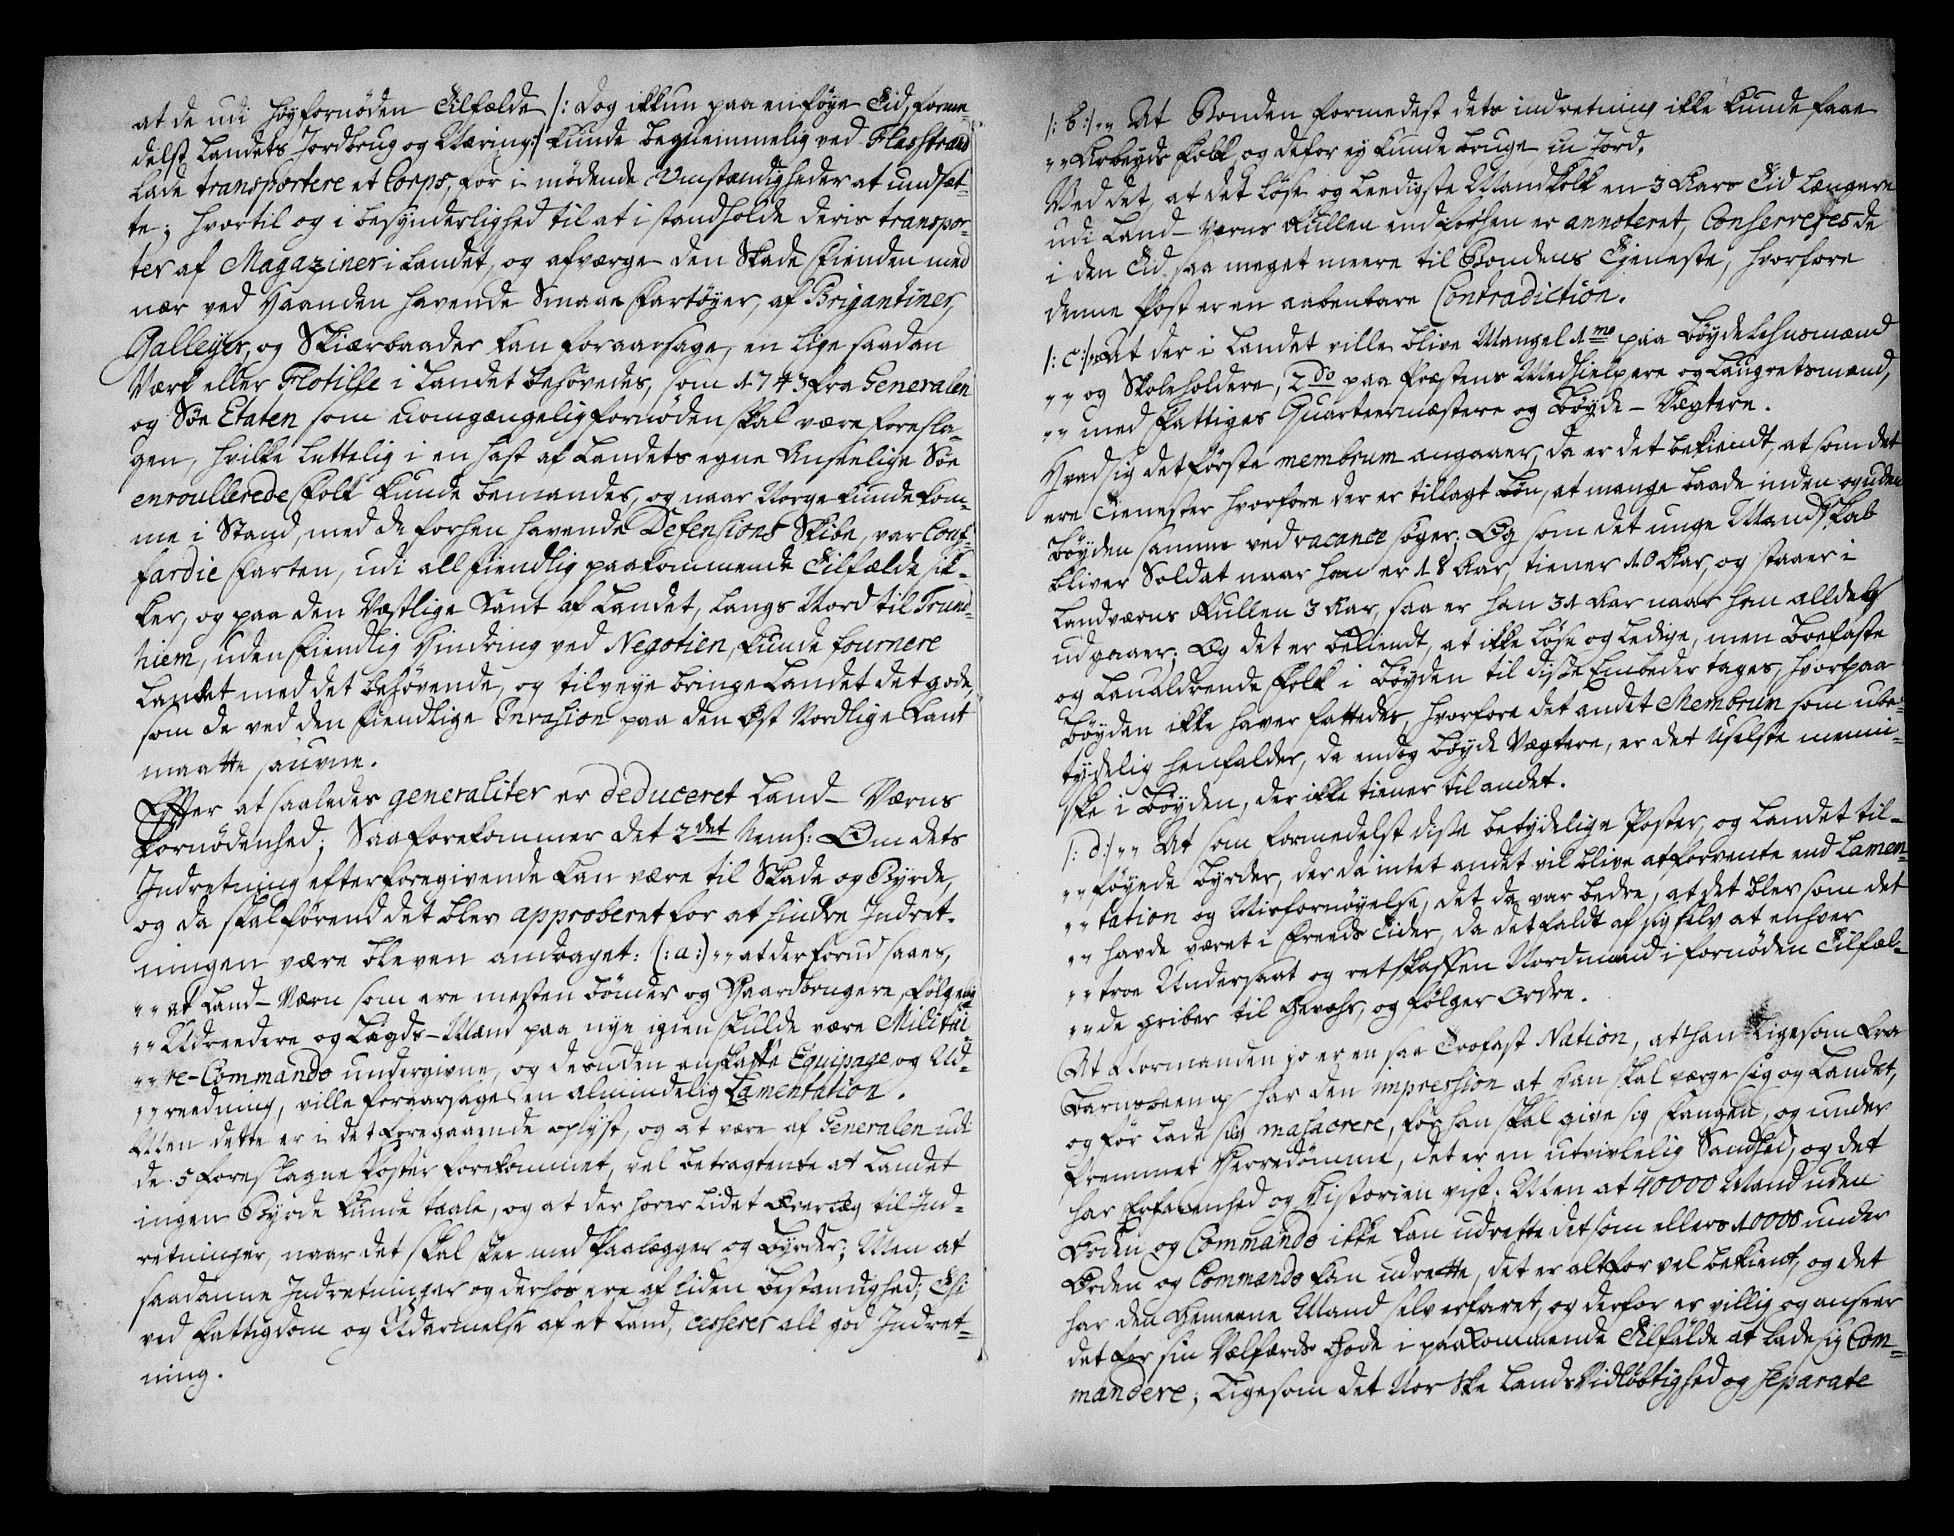 at de udi høyfornøden Tilfælde /: dog ikkun paa en føye Tid, forme-
delst Landets Jordbrug og Næring :/ kunde beqvemmelig ved Flasstrand
lade transportere et Corps, for i mødende Omstændigheder at undsæt-
te; hvortil og i besynderlighed til at i standholde deris transpor-
ter af Magaziner i Landet, og afværge den Skade Fienden med
nær ved Haanden havende Smaae Fartøyer, af Brigantiner,
Galleyer, og Skiærbaader kan foraarsage, en lige saadan
Værk eller Flotille i Landet behøvedes, som 1743 fra Generalen
og Søe Etaten som uomgængelig fornøden skal være foresla-
gen, hvilke lettelig i en hast af Landets egne Anseelige Søe
enroullerede Folk kunde bemandes, og naar Norge kunde kom-
me i Stand, med de forhen havende Defensions Skibe, var Couf-
fardie Farten, udi all fiendlig paakommende Tilfælde sik-
ker, og paa den Væstlige Kant af Landet, langs Nord til Trund-
hiem, uden fiendlig Hindring ved Negotien, kunde fournere
Landet med det behøvende, og tilveye bringe Landet det gode,
som de ved den fiendlige Invasion paa den Øst Nordlige Kant
maatte saufne.
Efter at saaledes generaliter er deduceret Land-Værns
Fornødenhed; Saa forekommer det 2det Neml: Om dets
Indretning efter foregivende kan være til Skade og Byrde,
og da skal førend det blev approberet for at hindre Indret-
ningen være bleven andraget: (:a:) „ at der forud saaes,
„ at Land-Værn som ere mesten bønder og Gaardbrugere, følgelig
„ Udreedere og Lægds-Mænd paa nye igien skulde være Militai-
„ re-Commando undergivne, og desuden anskaffe Equipage og Ud-
„ reedning, ville foraarsage en almindelig Lamentation.
Men dette er i det foregaaende oplyst, og at være af Generalen udi
de 5 foreslagne Poster forekommet, vel betragtende at Landet
ingen Byrde kunde taale, og at der hører lidet Overlæg til Ind-
retninger, naar det skal skee med Paalægger og Byrder; Men at
saadanne Indretninger og derhos ere af liden bestandighed; Thi
ved Fattigdom og Udarmelse af et Land, cesserer all god Indret-
ning.
/: b:/ „ At Bonden formedelst dets indretning ikke kunde faae
„ Arbeyds Folk, og defor ey kunde bruge sin Jord.
Ved det, at det løse og leedigste Mandskolk en 3 Aars Tid længere
udi Land-Værns Rullen end forhen er annoteret, Conserveres de
i den Tid saa meget meere til Bondens Tieneste, hvorfore
denne Post er en aabenbare Contradiction.
/: c:/ „ At der i Landet ville blive Mangel 1mo paa bøyde Lehnsmænd
„ og Skoleholdere, 2do paa Præstens Medhielpere og Laugretsmænd,
„ med Fattiges Quarteermæstere og bøyde-Vægtere.
Hvad sig det første membrum angaaer, da er det bekiendt, at som det
ere Tienester hvorfore der er tillagt Løn, at mange baade inden og uden
bøyden samme ved vacance søger; Og som det unge Mandskab
bliver Soldat naar han er 18 Aar, tiener 10 Aar, og staaer i
Landværns Rullen 3 Aar, saa er han 31 Aar naar han alldeles
udgaaer; Og det er bekiendt, at ikke løse og ledige, men boefaste
og Laualdrende Folk i bøyden til disse Embeder tages, hvorpaa
bøyden ikke haver fattedes, hvorfore det andet Membrum som ube-
tydelig henfalder, da endog bøyde Vægtere, er det Usleste menni-
ske i bøyden, der ikke tiener til andet.
/: d:/ „ At som formedelst disse betydelige Poster, og Landet til-
„ føyede byrder, der da intet andet vil blive at forvente end Lamen-
„ tation og Misfornøyelse, det da var bedre, at det blev som det
„ havde været i Freeds Tider, da det faldt af sig selv at enhver
„ troe Undersaat og retskaffen Nordmand i fornøden Tilfæl-
„ de griber til Gevæhr, og følger Ordre.
At Normanden jo er en saa Trofast Nation, at han ligesom fra
Barnsbeen har den impression at han skal værge sig og Landet,
og før lade sig masacrere, før han skal give sig fangen, og under
fremmet Herredømme, det er en utvivlelig Sandhed, og det
har Erfarenhed og Historien vist. Men at 40000 Mand uden
Orden og Commando ikke kan udrette det som ellers 10000 under
Orden og Commando kan udrette, det er altfor vel bekient, og det
har den Gemeene Mand selv erfaret, og derfor er villig og anseer
det for sin Velfærds Gode i paakommende Tilfælde at lade sig Com-
mandere; Ligesom det Norske Lands Vidløbtighed og separate